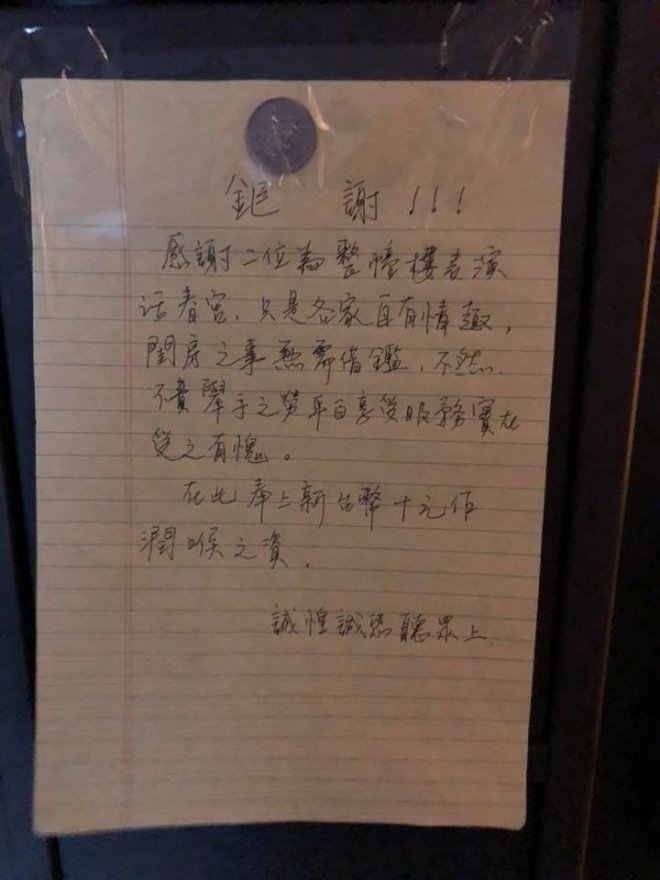 鉅 謝!!!
感謝二位為整幢樓表演
活春宮,只是各家自有情趣,
閨房之事無需借鑑,不然
不費舉手之勞平白享受服務實在
受之有愧。
在此奉上新台幣十元作
潤喉之資.
誠惶誠恐聽眾上.